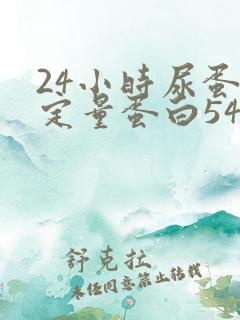 24小时尿蛋
定量蛋白54
舒克拉
未经同意禁止转载